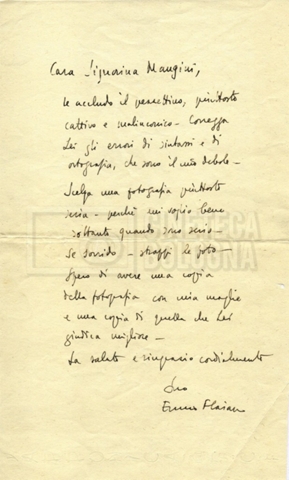 Cara Signorina Mangini,
le accludo il pezzettino, piuttosto
cattivo e malinconico - Corregga
Lei gli errori di sintassi e di
ortografia, che sono il mio debole -
Scelga una fotografia piuttosto
seria - perché mi voglio bene
soltanto quando sono serio -
Se sorrido - strappi la foto -
Spero di avere una copia
della fotografia con mia moglie
e una copia di quella che Lei
giudica migliore -
La saluto e ringrazio cordialmente
Suo
Ennio Flaiano